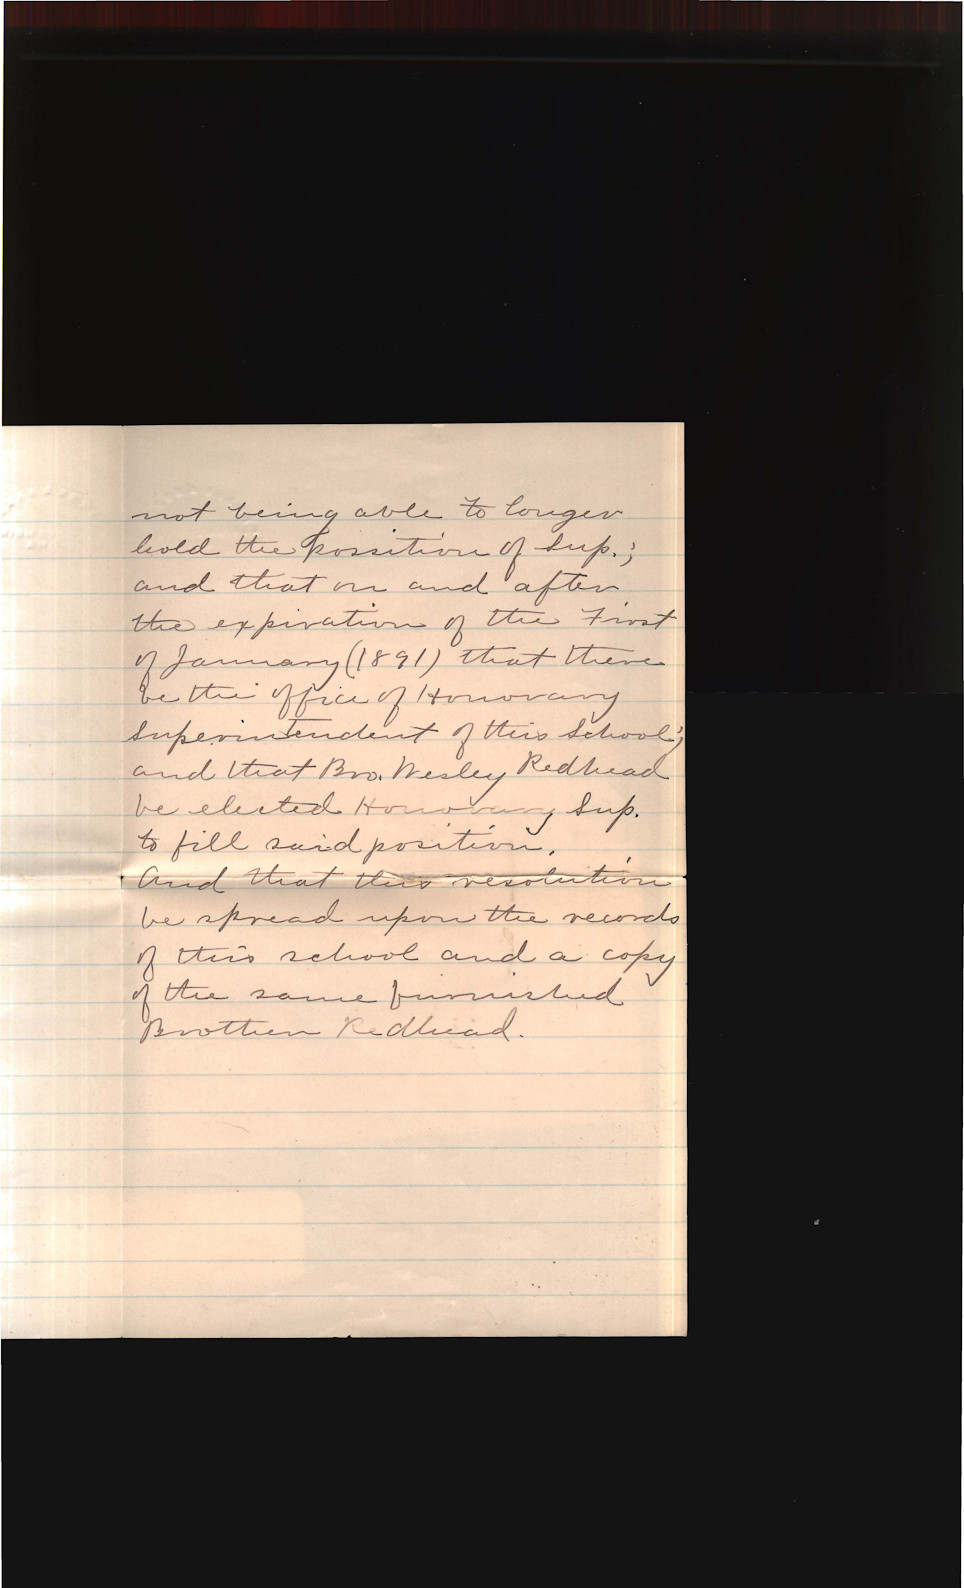 not being able to longer
hold the possition of Sup.;
and that on and after
the expiration of the First
of January (1891) that there
be the office of Honorary
Superintendent of this School;
and that Bro. Wesley Redhead
be elected Honorary Sup.
to fill said position.
And that this resolution
be spread upon the records
of this school and a copy
of the same furnished
Brother Redhead.